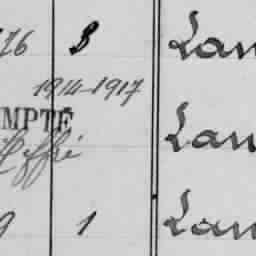 176 3 Lan
1914-1917
MPTÉ Lan
9 1 Lan